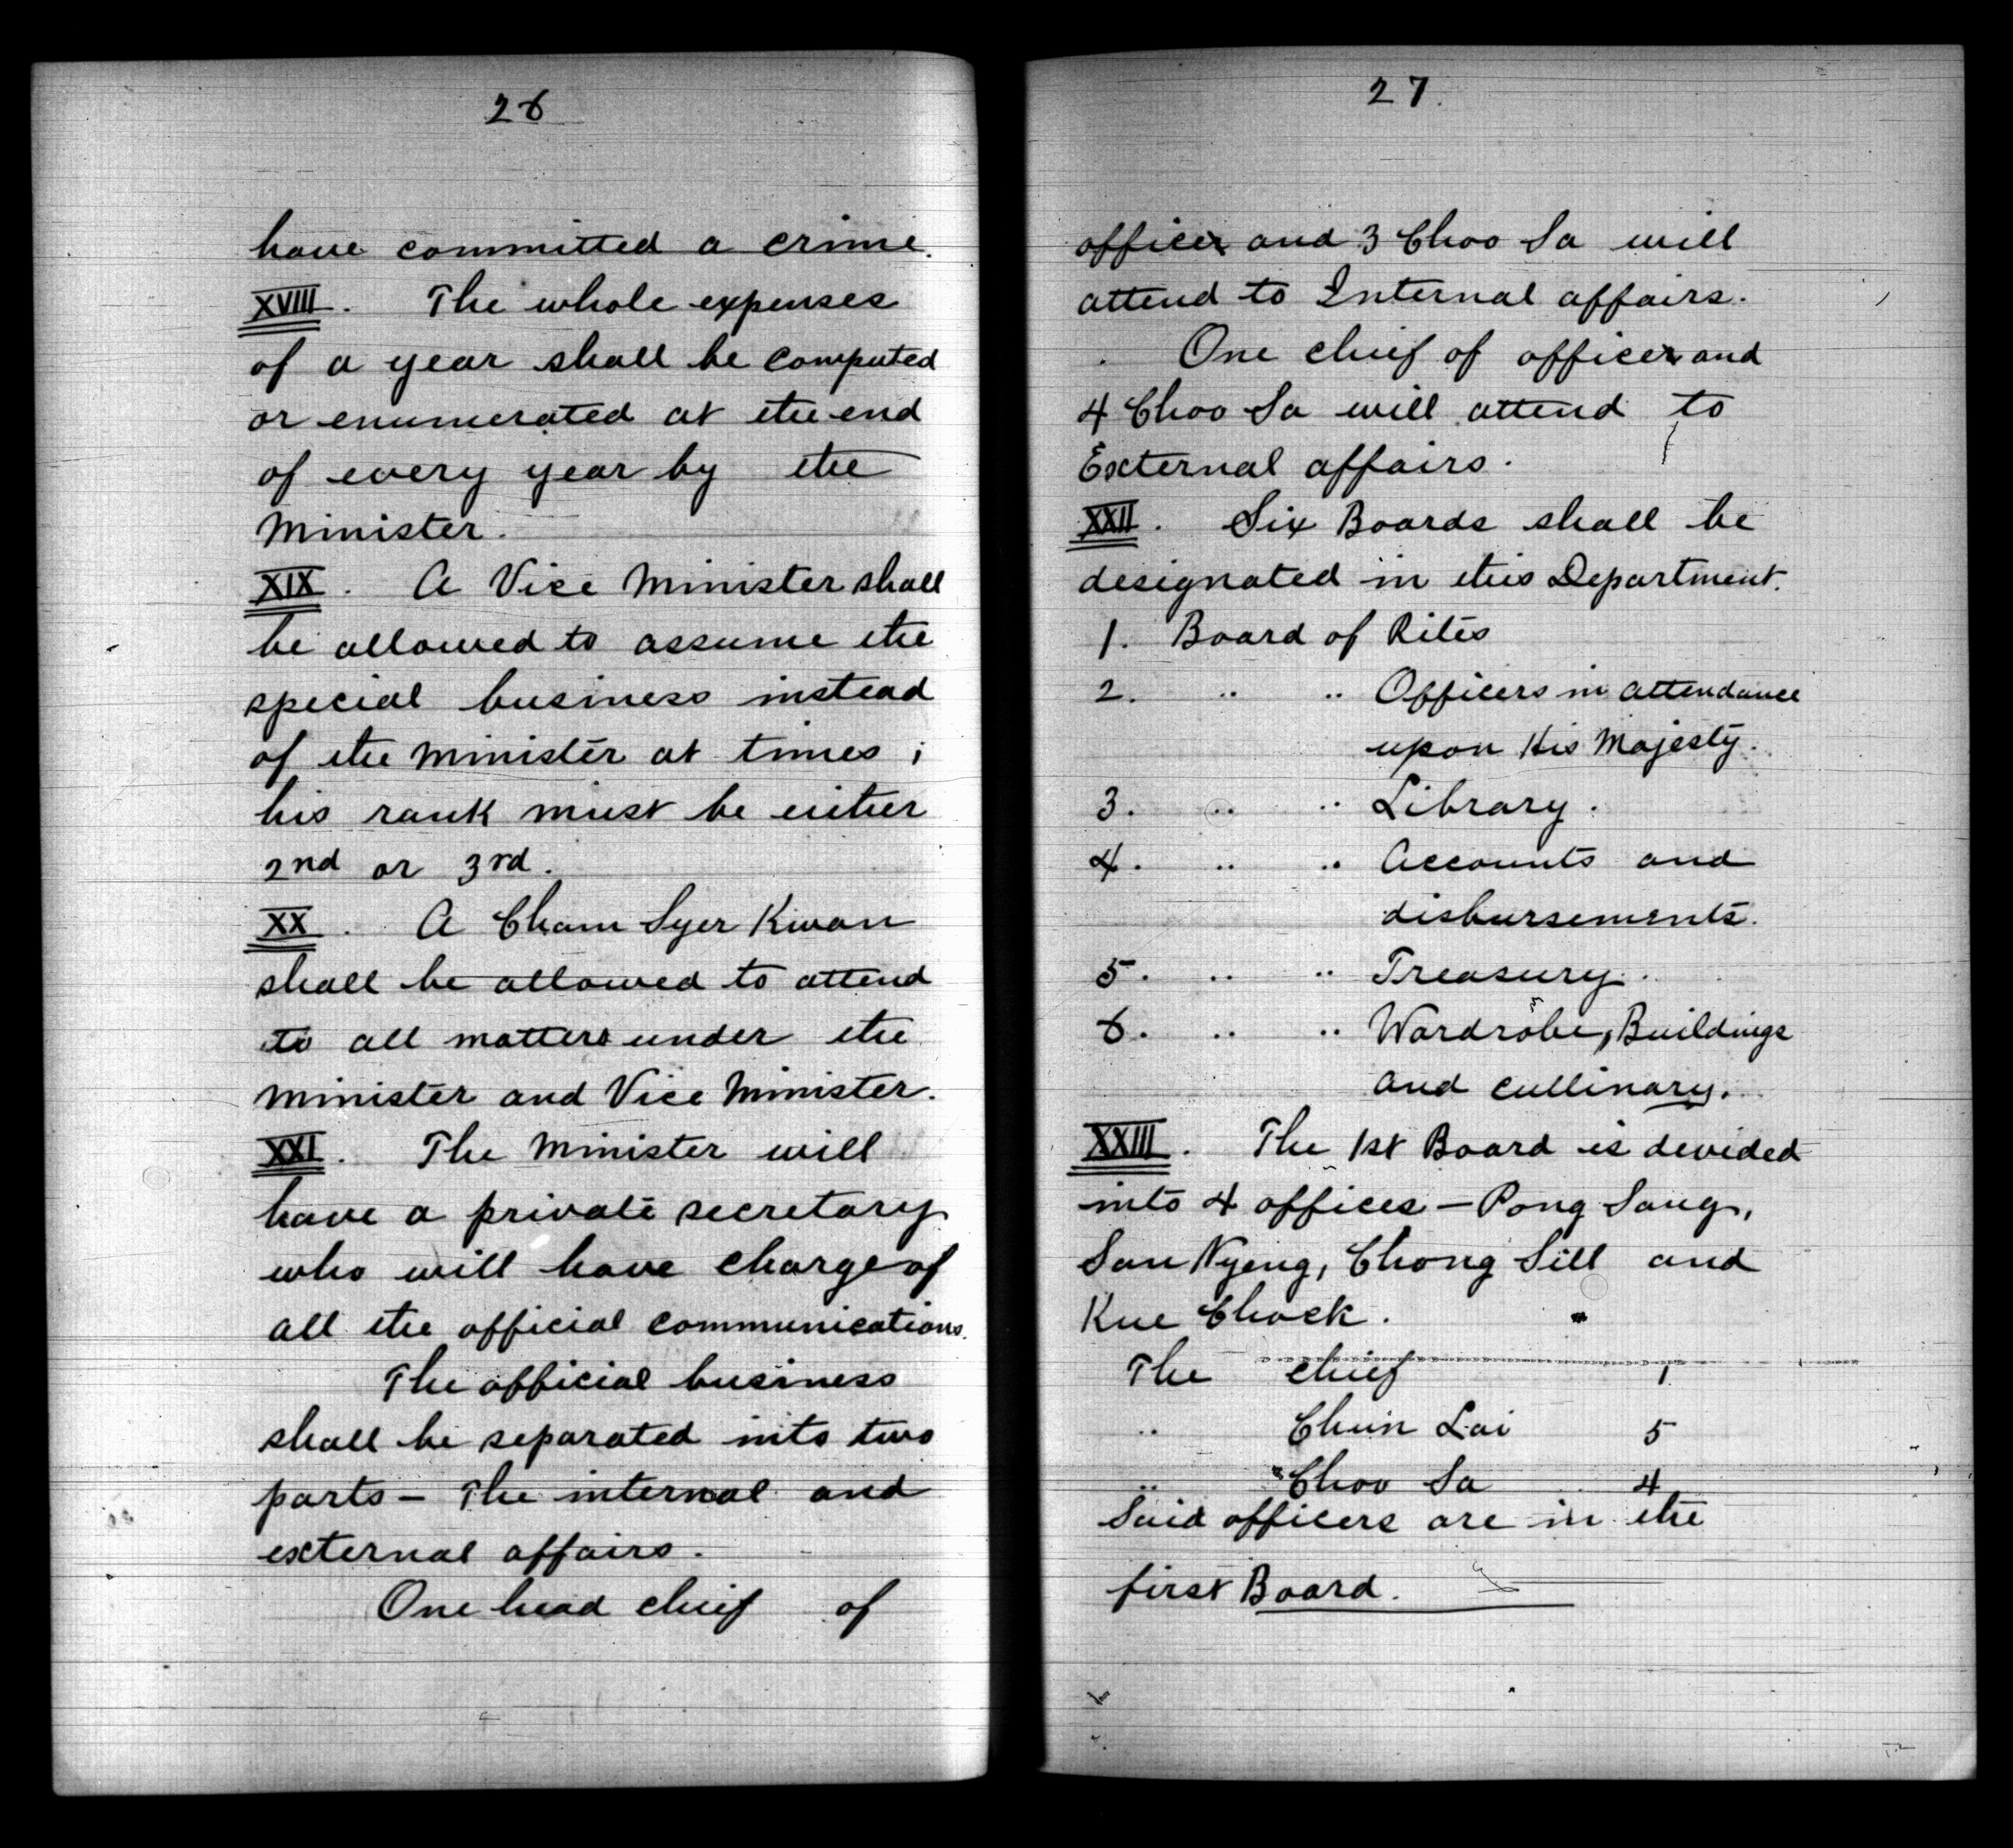 26
have committed a crime.
XVIII. The whole expenses
of a year shall be computed
or enumerated at the end
of every year by the
Minister.
XIX. A Vice Minister shall
be allowed to assume the
special business instead
of the Minister at times;
his rank must be either
2nd or 3rd.
XX. A Cham Syer Kwan
shall be allowed to attend
to all matters under the
Minister and Vice Minister.
XXI. The Minister will
have a private secretary
who will have charge of
all the official communications.
The official business
shall be separated into two
parts — The internal and
external affairs.
One head chief of
27.
officer and 3 Choo Sa will
attend to Internal affairs.
One chief of officer and
4 Choo Sa will attend to
External affairs.
XXII. Six Boards shall be
designated in this Department.
1. Board of Rites
2. " " Officers in attendance
upon His Majesty.
3. " " Library.
4. " " Accounts and
disbursements.
5. " " Treasury.
6. " " Wardrobe, Buildings
and cullinary.
XXIII. The 1st Board is devided
into 4 offices — Pong Sang,
San Nyeng, Chong Sill and
Kue Chack.
The chief 1
" Chuin Lai 5
" Choo Sa 4
Said officers are in the
first Board.